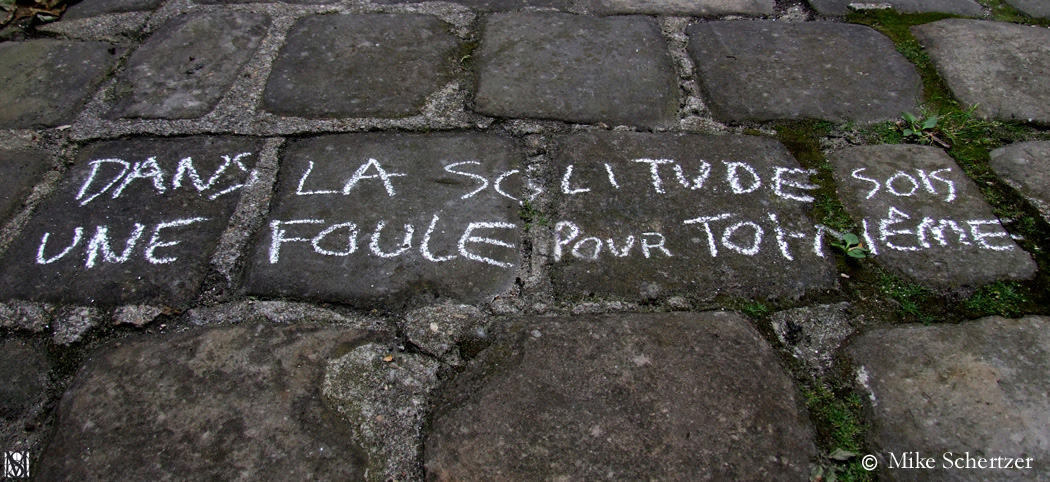 DANS LA SOLITUDE SOIS
UNE FOULE POUR TOI-MÊME
© Mike Schertzer